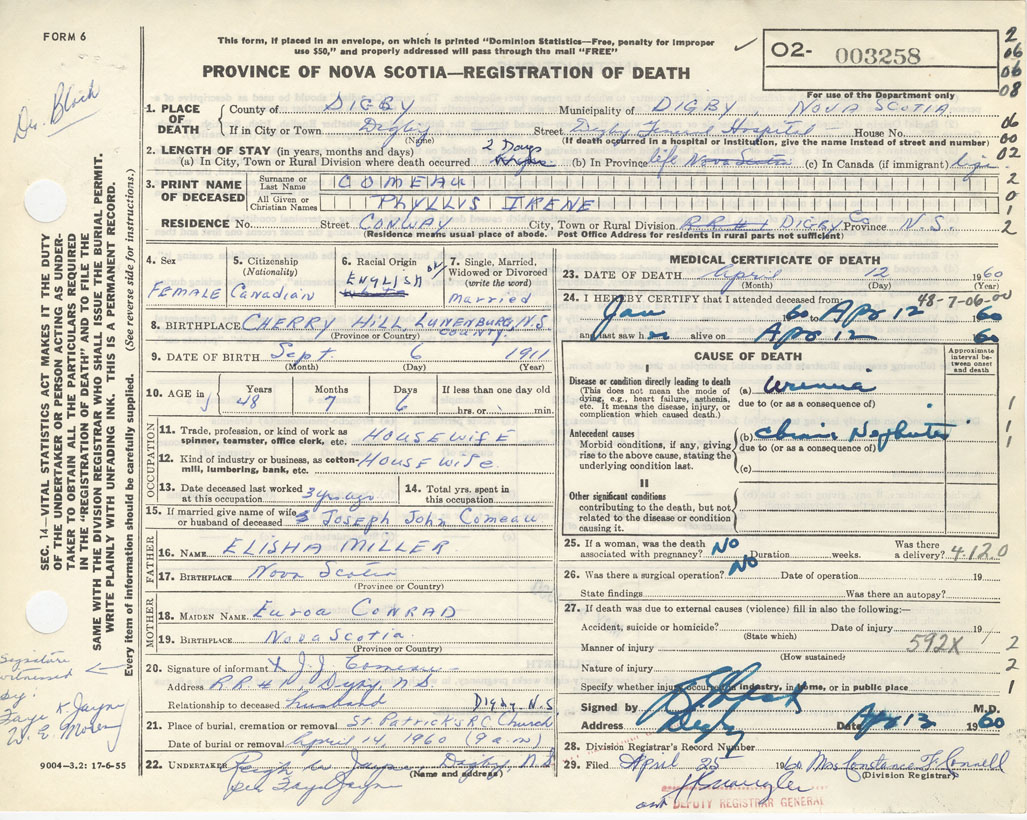 FORM 6
This form, if placed in an envelope, on which is printed "Dominion Statistics—Free, penalty for improper
use $50," and properly addressed will pass through the mail "FREE"
PROVINCE OF NOVA SCOTIA—REGISTRATION OF DEATH
02- 003258
For use of the Department only
2
06
06
08
06
00
02
2
0
1
2
SEC. 14—VITAL STATISTICS ACT MAKES IT THE DUTY
OF THE UNDERTAKER OR PERSON ACTING AS UNDER-
TAKER TO OBTAIN ALL THE PARTICULARS REQUIRED
IN THE "REGISTRATION OF DEATH" AND TO FILE THE
SAME WITH THE DIVISION REGISTRAR WHO SHALL ISSUE THE BURIAL PERMIT.
WRITE PLAINLY WITH UNFADING INK. THIS IS A PERMANENT RECORD.
Every item of information should be carefully supplied. (See reverse side for instructions.)
1. PLACE OF DEATH
County of DIGBY Municipality of DIGBY, NOVA SCOTIA
If in City or Town Digby Street Digby General Hospital House No.
(Name) (If death occurred in a hospital or institution, give the name instead of street and number)
2. LENGTH OF STAY (in years, months and days)
(a) In City, Town or Rural Division where death occurred 2 Days (b) In Province life Nova Scotia (c) In Canada (if immigrant) life
3. PRINT NAME OF DECEASED
Surname or Last Name COMEAU
All Given or Christian Names PHYLLIS IRENE
RESIDENCE No. Street CONWAY City, Town or Rural Division RR#1 DIGBY Co Province N.S.
(Residence means usual place of abode. Post Office Address for residents in rural parts not sufficient)
4. Sex FEMALE
5. Citizenship (Nationality) Canadian
6. Racial Origin ENGLISH
7. Single, Married, Widowed or Divorced (write the word) married
8. BIRTHPLACE CHERRY HILL, LUNENBURG, N.S. COUNTY.
(Province or Country)
9. DATE OF BIRTH Sept 6 1911
(Month) (Day) (Year)
10. AGE in
Years Months Days If less than one day old
48 7 6 hrs. or min.
OCCUPATION
11. Trade, profession, or kind of work as
spinner, teamster, office clerk, etc. HOUSEWIFE
12. Kind of industry or business, as cotton-
mill, lumbering, bank, etc. HOUSEWIFE
13. Date deceased last worked
at this occupation 3 yrs ago
14. Total yrs. spent in
this occupation
15. If married give name of wife
or husband of deceased Joseph John Comeau
FATHER
16. NAME ELISHA MILLER
17. BIRTHPLACE Nova Scotia
(Province or Country)
MOTHER
18. MAIDEN NAME CONRAD
19. BIRTHPLACE Nova Scotia
(Province or Country)
20. Signature of informant X J. J. Comeau
Address RR#1 Digby, NS
Relationship to deceased husband
Digby N.S
21. Place of burial, cremation or removal St. Patricks R.C. Church
Date of burial or removal April 14, 1960 (9 a.m)
22. UNDERTAKER Jayne Digby, N.S
(Name and address)
per Faye Jayne
Signature
witnessed
by:
Faye K. Jayne
9004—3.2: 17-6-55
MEDICAL CERTIFICATE OF DEATH
23. DATE OF DEATH April 12 1960
(Month) (Day)
48-7-06-00
24. I HEREBY CERTIFY that I attended deceased from
Jan 60 to Apr 12 1960
and last saw her alive on Apr 12 60
CAUSE OF DEATH
Approximate interval between onset and death
I
Disease or condition directly leading to death
(This does not mean the mode of
dying, e.g., heart failure, asthenia,
etc. It means the disease, injury, or
complication which caused death.)
(a) Uremia
due to (or as a consequence of)
Antecedent causes
Morbid conditions, if any, giving
rise to the above cause, stating the
underlying condition last.
(b) Chronic Nephritis
due to (or as a consequence of)
(c)
1
1
1
II
Other significant conditions
contributing to the death, but not
related to the disease or condition
causing it.
25. If a woman, was the death
associated with pregnancy? NO Duration weeks. Was there
a delivery? 4120
26. Was there a surgical operation? NO Date of operation 19
State findings Was there an autopsy?
27. If death was due to external causes (violence) fill in also the following:—
Accident, suicide or homicide? Date of injury 19
(State which)
Manner of injury 592X
(How sustained)
Nature of injury
Specify whether injury occurred in industry, in home, or in public place
2
2
1
Signed by M.D.
Address Digby Date Apr 12 1960
28. Division Registrar's Record Number
29. Filed April 25 1960 Mrs Constance F. Connell
(Division Registrar)
DEPUTY REGISTRAR GENERAL